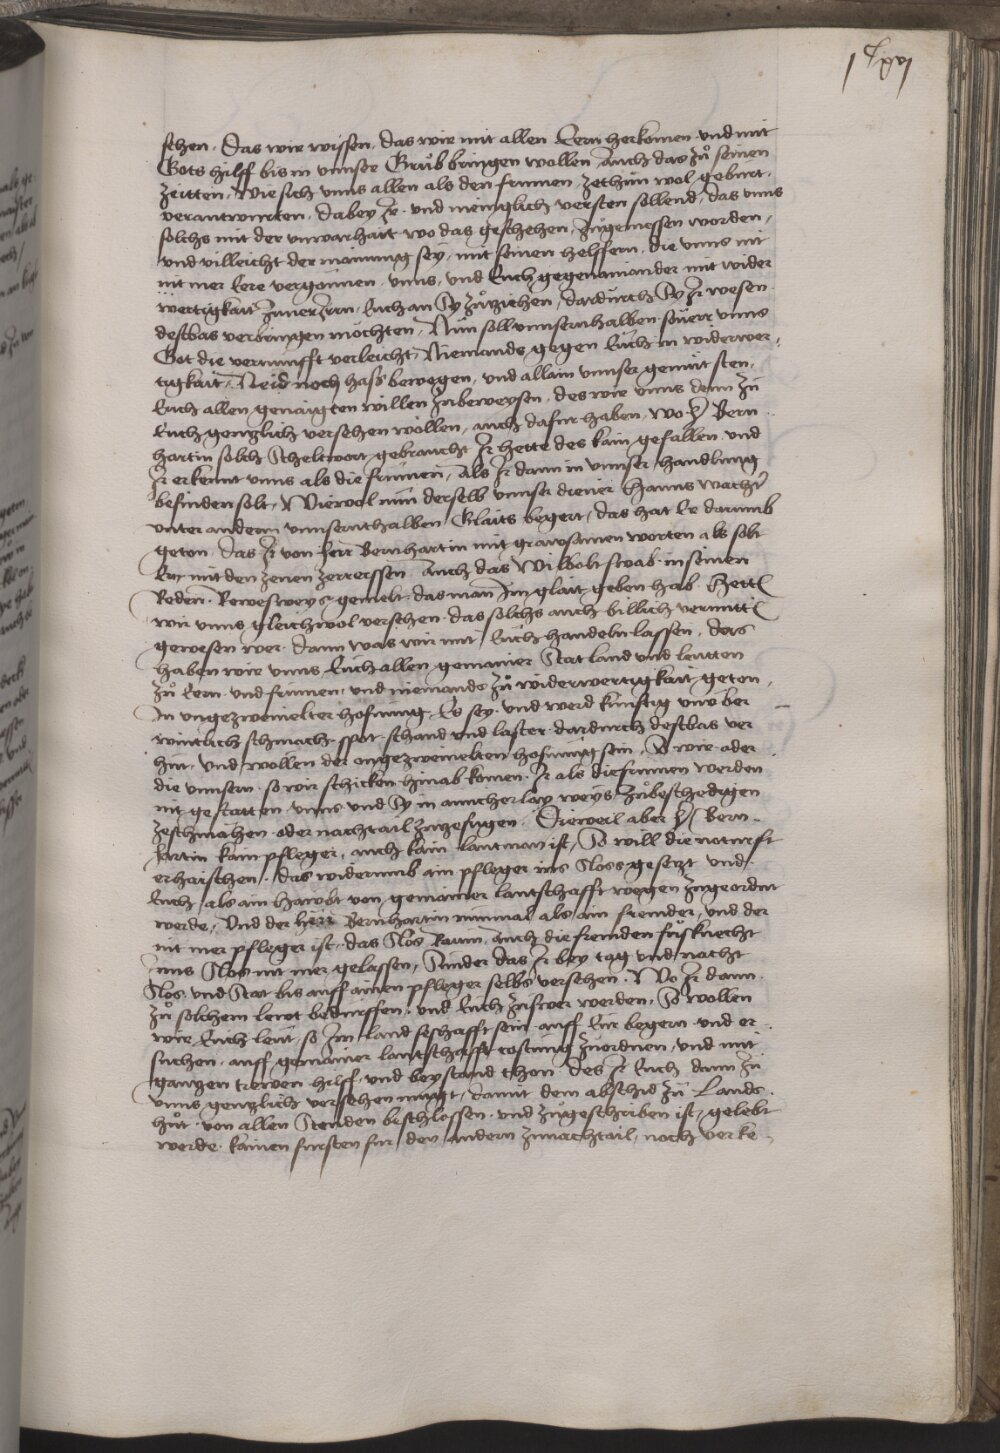 sehen. Das wir wissen, das wir mit allen Eern herkomen vnd mit
Gots hilff bis in vnnser Grub bringen wollen, auch das zů seinen
zeitten, wie sich vnns allen als den frumen zethun wol gebürt,
verantwurten, dabey Ir vnd meniglich versten sollend, das vnns
solchs mit der vnwarhait wo das geschehen, zugemessen worden,
vnd villeicht der mainung sey, mit seinen helffern, die vnns nit
nit mer Eere vergönnen, vnns vnd Euch gegenainander mit wider
wertigkait Euch an Sy zůziehen, dardurch Sy Ir wesen
destbas verbringen möchten, Nun soll vnnsernhalben souerr vnns
Got die vernunfft verleicht, Niemands gegen Euch in widerwer,
tigkait, Neid noch hass bewegen, vnd allain vnnser gemüt sten,
Euch allen genaigten willen zubeweysen, des wir vnns denn zu
Euch genzlich versehen wöllen, auch dafur haben, wo her Bern
hartin solch Scheltwort gebraucht Ir hette des kain gefallen vnd
Ir erkennt vnns als die frumen, Als Ir dann in vnnser handlung
befinden solt, Wiewol nun derselb vnnser diener Hanns
vnter anderm vnnsernthalben Glaits begert, das hat Er darumb
geton, das Ir von herr Bernhartin mit grawsamen worten als solt
Er mit den zenen zerreissen, auch das Wilbolt swab in seinen
Reden gemelt, das man Im glait geben hab, Hett
wir vnns gleichwol versehen, das solchs auch billich vermitt
gewesen wer, dann was wir mit Euch handeln lassen, das
haben wir vnns Euch allen gemainer Stat land vnd leutten
zů Eern vnd frumen, vnd niemands zů widerwertigkait geton,
In vngezweiuelter hofnung, Es sey vnd werd künftig vnnser
schmach spot schand vnd laster dardurch destbas ver
hut, vnd wollen der vngezweiuelten hofnung sein, So wir oder
die vnnsern so wir schicken hinab komen, Ir als die frumen werden
nit gestatten vnns vnd Sy in ainicherlay weys zubeschedigen
zeschmahen oder nachtail zuzefugen. Dieweil aber her Bern-
hartin kain pfleger, auch kain lantman ist, So will die noturft
erhaischen, das widerumb ain pfleger ins Sloss gesetzt vnd
Euch als ain hawbt von gemainer lantschafft wegen zugeordnt
werde, Vnd der herr Bernhartin nunmal als ain frembder, vnd der
nit mer pfleger ist, das Slos Raum, auch die fremden fusknecht
ins Slos nit mer gelassen, Sunder das Ir bey tag vnd nacht
Slos vnd Stat bis auff ainen pfleger selbs versehen. Wo Ir dann
zů solchem lewt bedurffen, vnd Euch zuswer werden, So wollen
wir Euch leut, so Im land seshafft sein, auff Eur begern vnd er
suchen, auff gemainer lantschafft costung zuordnen, vnd mit
ganzen trewen hilff vnd beystand thon, des Ir Euch dann zu
vnns genzlich versehen mugt, damit dem abschid zu Lands
hůt von allen Stenden beschlossen, vnd zůgeschriben ist, gelebt
werde, kainen fursten fur den andern zunachtail, noch verke-